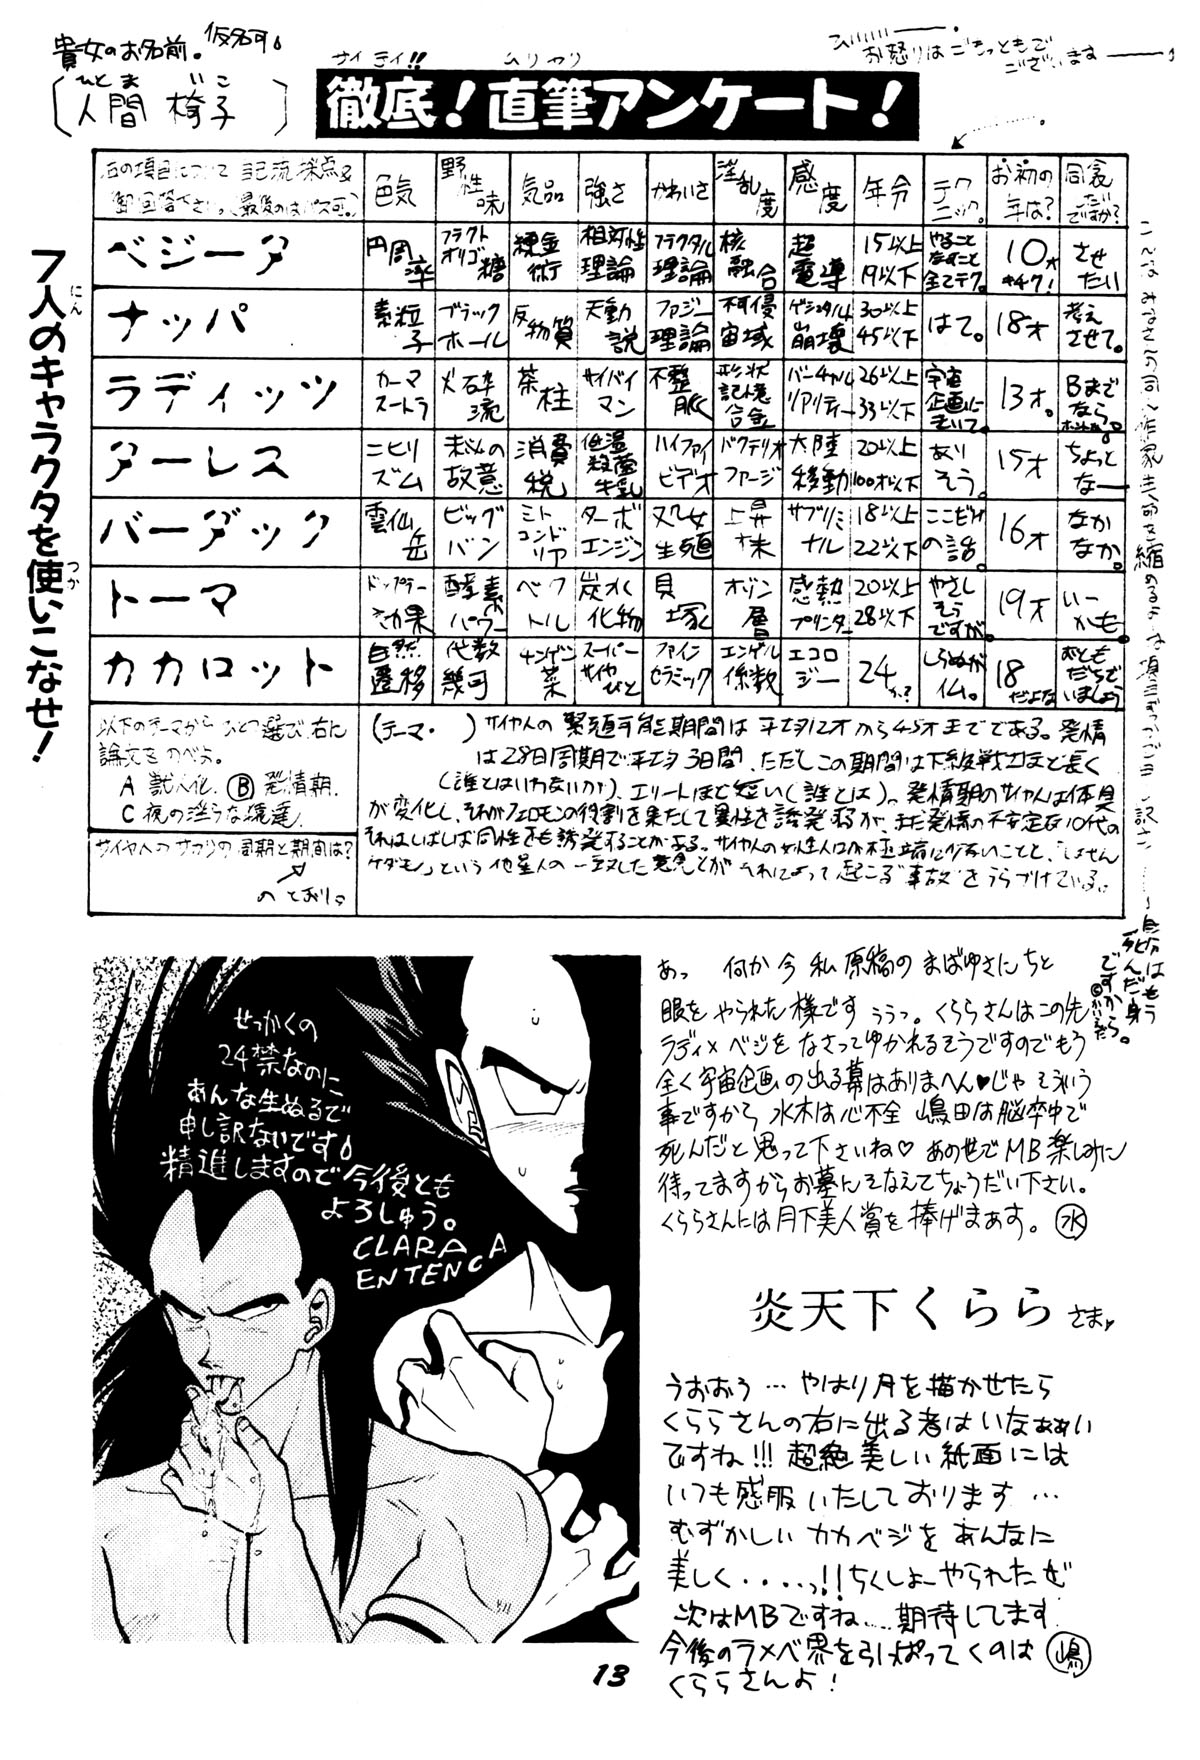 貴女のお名前。仮名可
ひとま いこ
〔人間 椅子 〕
サイテイ!! ムリヤリ
徹底!直筆アンケート!
ひいいい——。
お怒りはごもっともで
ございます——
7人のキャラクタを使いこなせ!
にん つか
右の項目について 記流採点&
御回答下さい。(最後のはパス可。)
色気 野性味 気品 強さ かわいさ 淫乱度 感度 年令 テクニック。 お初の年は? 同衾したいですか?
ベジータ 円周率 フラクトオリゴ糖 錬金術 相対性理論 フラクタル理論 核融合 超電導 15以上19以下 やることなすこと全てテク。 10才 キチク! させたい
ナッパ 素粒子 ブラックホール 反物質 天動説 ファジー理論 不可侵宙域 ゲシュタルト崩壊 30以上45以下 はて。 18才 考えさせて。
ラディッツ カーマスートラ 火砕流 茶柱 サイバイマン 不整脈 形状記憶合金 バーチャルリアリティー 26以上33以下 宇宙企画にきいて。 13才。 Bまでなら。
ターレス ニヒリズム 未必の故意 消費税 低温殺菌牛乳 ハイファイビデオ バクテリオファージ 大陸移動 20以上100才以下 ありそう。 15才 ちょっとなー
バーダック 雲仙岳 ビッグバン ミトコンドリア ターボエンジン 処女生殖 上昇株 サブリミナル 18以上22以下 ここだけの話。 16才 なかなか。
トーマ ドップラー効果 酵素パワー ベクトル 炭水化物 貝塚 オゾン層 感熱プリンター 20以上28以下 やさしそうですが。 19才 いーかも。
カカロット 自然遷移 代数幾何 チンゲン菜 スーパーサイヤひと ファインセラミック エンゲル係数 エコロジー 24か? しらぬがイム。 18だよな おともだちでいましょう
以下のテーマから ひとつ選び、右に
論文をのべよ。
A 獣人化. Ⓑ 発情期.
C 夜の淫らな
サイヤ人のサカリの周期と期間は?
のとおり。
(テーマ・ ) サイヤ人の緊頭可能期間は平均12才から45才までである。発情
は28日周期で平均3日間、ただしこの期間は下級戦士ほど長く
(誰とはいわないが)、エリートほど短い(誰とは)。発情期のサイヤ人は体臭
が変化し、それがフェロモンの役割を果たして異性を誘発するが、まだ発情の不安定な10代の
それはしばしば同性をも誘発することがある。サイヤ人の女性人口が極端に少ないことと、「しょせん
ケダモノ」という他星人の一致した意見とが それによって起こる"事故"をうらづけている。
自分はもう
死んだ身
ですから。
せっかくの
24禁なのに
あんな生ぬるで
申し訳ないです
精進しますので今後とも
よろしゅう。
CLARA
ENTENCA
あっ 何か今 私 原稿の まばゆさに ちと
眼を やられた様です ううっ。くららさんはこの先
ラディ×ベジを なさってゆかれるそうですのでもう
全く宇宙企画の出る幕はありまへん♥じゃ そういう
事ですから 水木は心不全 嶋田は脳卒中で
死んだと思って下さいね♡ あの世でMB楽しみに
待ってますからお墓にそなえてちょうだい下さい。
くららさんには月下美人賞を捧げまぁす。㊌
炎天下くらら さま
うおおう…やはり月を描かせたら
くららさんの右に出る者はいなぁぁい
ですね!!! 超絶美しい紙面には
いつも感服いたしております…
むずかしい カカベジを あんなに
美しく・・・・っ!! ちくしょーやられたぜ
次はMBですね…. 期待してます
今後のラ×ベ界を引っぱってくのは
くららさんよ! 嶋
13